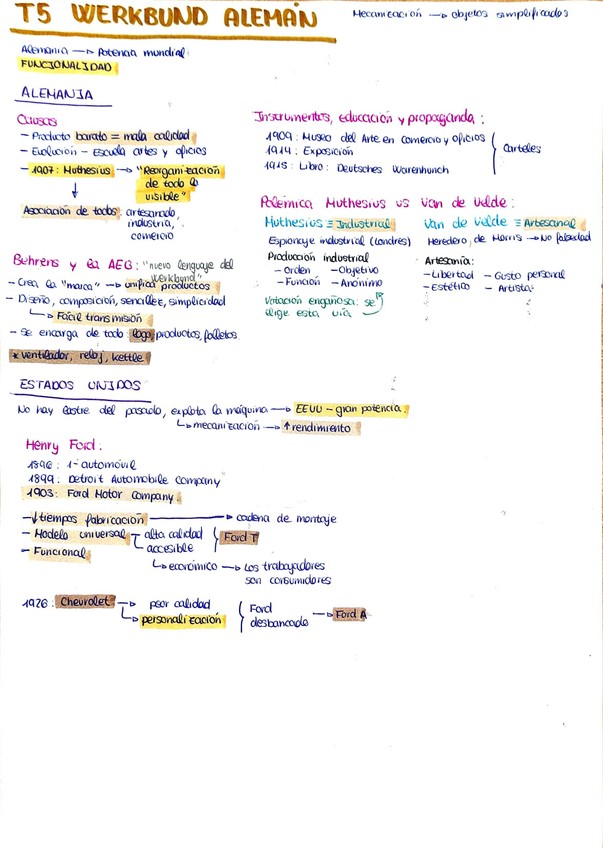 T5 WERKBUND ALEMÁN
Mecanización → objetos simplificados
Alemania → Potencia mundial
FUNCIONALIDAD
ALEMANIA
Causas
- Producto barato = mala calidad
- Evolución - Escuela artes y oficios
- 1907: Muthesius → "Reorganización
de todo lo
visible"
↓
Asociación de todos: artesanado,
industria,
comercio
Instrumentos, educación y propaganda:
1909: Museo del Arte en comercio y oficios
1914: Exposición
1915: Libro: Deutsches Warenhunch
Carteles
Polémica Muthesius vs Van de Velde:
Muthesius = Industrial
Espionaje industrial (Londres)
Producción industrial
- Orden - Objetivo
- Función - Anónimo
Votación engañosa: se
elige esta vía
Van de Velde = Artesanal
Heredero de Morris → No falsedad
Artesanía:
- Libertad - Gusto personal
- Estético - Artista
Behrens y la AEG: "nuevo lenguaje del
Werkbund"
- Crea la "marca" → unifica productos
- Diseño, composición, sencillez, simplicidad
↳ Fácil transmisión
- Se encarga de todo: logo, productos, folletos.
* ventilador, reloj, kettle
ESTADOS UNIDOS
No hay lastre del pasado, explota la máquina → EEUU - gran potencia.
↳ mecanización → ↑ rendimiento
Henry Ford:
1896: 1º automóvil
1899: Detroit Automobile Company
1903: Ford Motor Company.
- ↓ tiempos fabricación → cadena de montaje
- Modelo universal - alta calidad
accesible
Ford T
- Funcional
↳ económico → Los trabajadores
son consumidores
1926: Chevrolet → peor calidad
↳ personalización
Ford
desbancado → Ford A